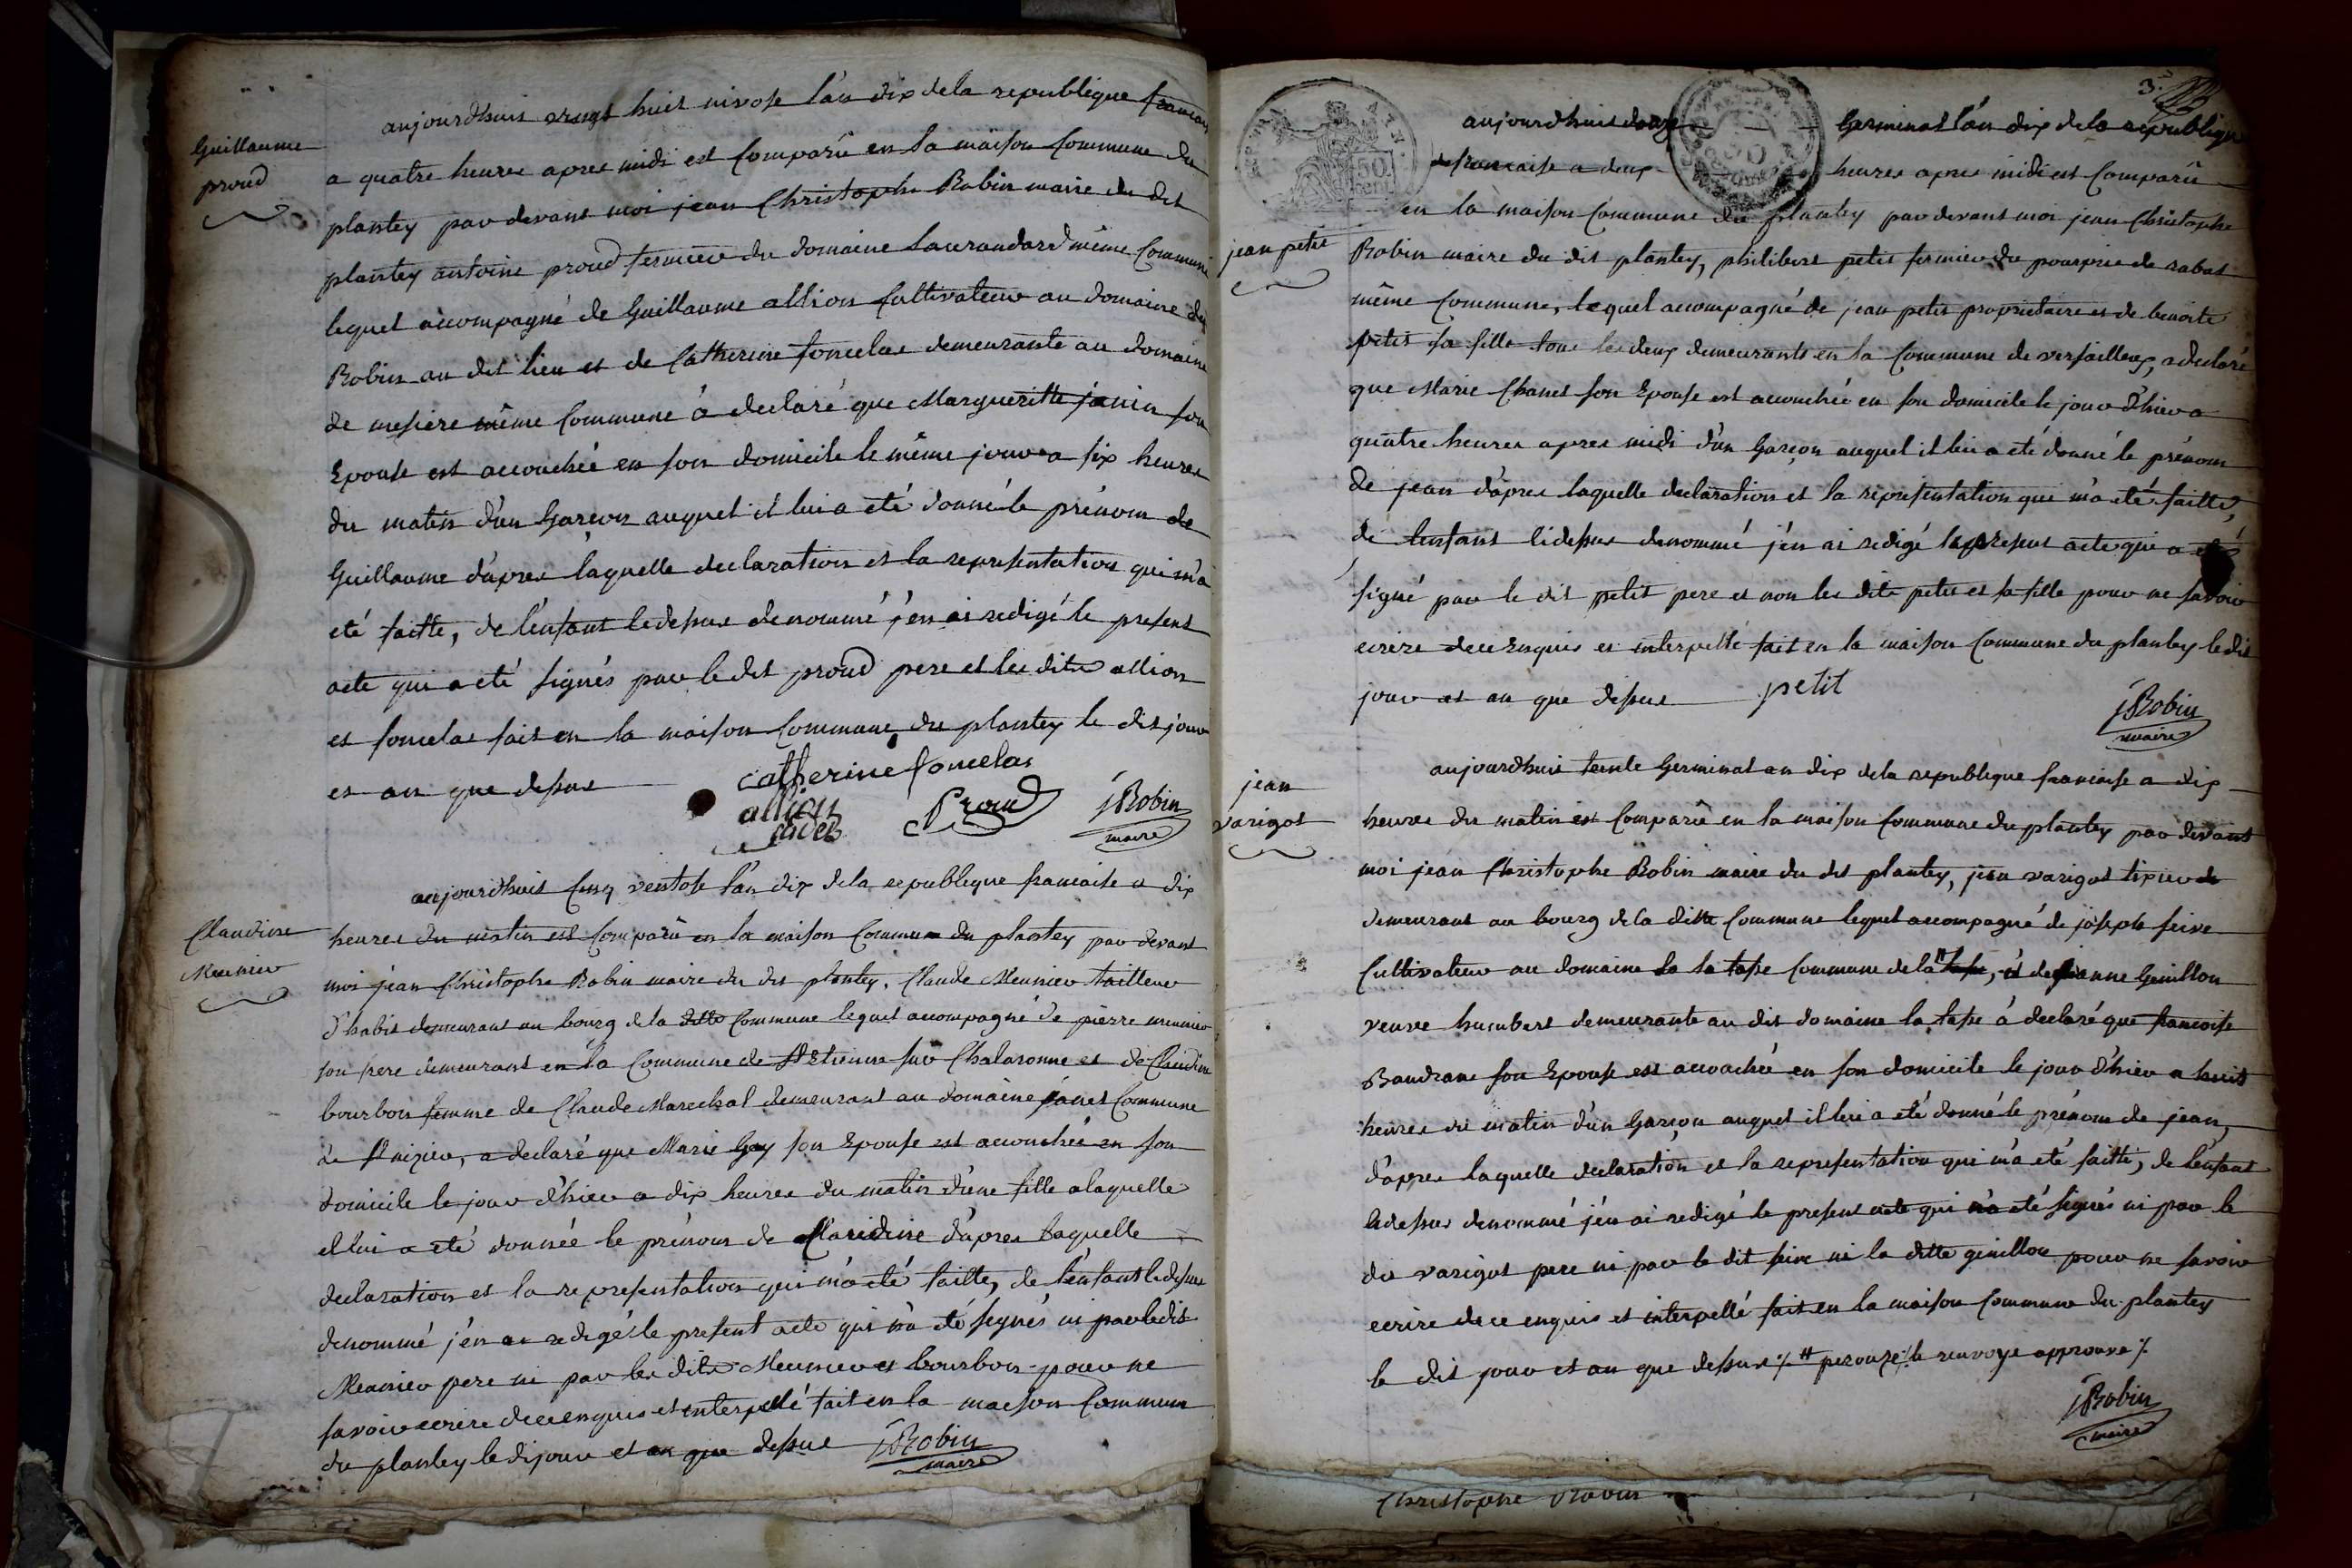 Guillaume
proud
aujourdhuis vingt huit nivose l'an dix de la republique francais
a quatre heures apres midi est Comparû en la maison Commune du
plantey par devant moi jean Christophe Robin maire du dit
plantey antoine proud fermier du domaine Laurandard même Commune
lequel accompagné de Guillaume allion Cultivateur au domaine des
Robin au dit lieu et de Catherine foncelas demeurante au domaine
de mesiere même Commune à declaré que Margueritte janin son
Epouse est accouchée en son domicile le même jour a six heures
du matin d'un Garçon auquel il lui a eté donné le prénom de
Guillaume d'apres laquelle declaration et la representation qui m'a
eté faitte, de l'enfant Cidessus denommé j'en ai redigé le present
acte qui a eté signés par le dit proud pere et les dits allion
et foncelas fait en la maison Commune du plantey le dit jour
et an que dessus
Catherine foncelas
allion
Proud
JRobin
maire
Claudine
Meunier
aujourdhuit Cinq ventose l'an dix de la republique francaise a dix
heures du matin est Comparû en la maison Commune du plantey par devant
moi jean Christophe Robin maire du dit plantey, Claude Meunier tailleur
d'habit demeurant au bourg de la ditte Commune lequel accompagné de pierre meunier
son frere demeurant en la Commune de St Etienne sur Chalaronne et de Claudine
bourbon femme de Claude Marechal demeurant au domaine janet Commune
de St nizier, a declaré que Marie Gay son Epouse est accouchée en son
domicile le jour d'hier a dix heures du matin d'une fille a laquelle
il lui a eté donnée le prénom de Claudine d'apres laquelle
declaration et la representation qui m'a eté faitte, de l'enfant Cidessus
denommé j'en ai redigé le present acte qui n'a eté signés ni par le dit
Meunier pere ni par les dits Meunier et bourbon pour ne
savoir ecrire de ce enquis et interpellé fait en la maison Commune
du plantey le di jour et an que dessus
JRobin
maire
3
50
cent
jean petit
aujourdhuit douze Germinal l'an dix de la republique
francaise a deux heures apres midi est Comparû
en la maison Commune du plantey par devant moi jean Christophe
Robin maire du dit plantey, philibert petit fermier du pourprie de rabat
même Commune, lequel accompagné de jean petit proprietaire et de benoite
petit sa fille tous les deux demeurants en la Commune de versailleux, a declaré
que Marie Chanet son Epouse est accouchée en son domicile le jour d'hier a
quatre heures apres midi d'un Garçon auquel il lui a eté donné le prénom
de jean d'apres laquelle declaration et la representation qui m'a eté faitte,
de lenfant Cidessus denommé j'en ai redigé le present acte qui a eté
signé par le dit petit pere et non les dits petit et sa fille pour ne savoir
ecrire de ce Enquis et interpellé fait en la maison Commune du plantey le dit
jour et an que dessus petit
JRobin
maire
jean
varigot
aujourdhuit trente Germinal an dix de la republique francaise a dix
heures du matin est Comparû en la maison Commune du plantey par devant
moi jean Christophe Robin maire du dit plantey, jean varigot tixier
demeurant au bourg de la ditte Commune lequel accompagné de joseph feive
Cultivateur au domaine la tasse Commune de la # , et de jeanne Genillon
veuve humbert demeurante au dit domaine la tasse à declaré que francoise
Baudran son Epouse est accouchée en son domicile le jour d'hier a huit
heures du matin d'un Garçon auquel il lui a eté donné le prénom de jean,
d'apres laquelle declaration et la representation qui m'a eté faitte, de l'enfant
Cidessus denommé j'en ai redigé le present acte qui n'a eté signés ni par le
dit varigot pere ni par le dit feive ni la ditte genillon pour ne savoir
ecrire de ce enquis et interpellé fait en la maison Commune du plantey
le dit jour et an que dessus ·/. # perouze ·/. le renvoye approuve ·/.
JRobin
maire
Christophe Robin